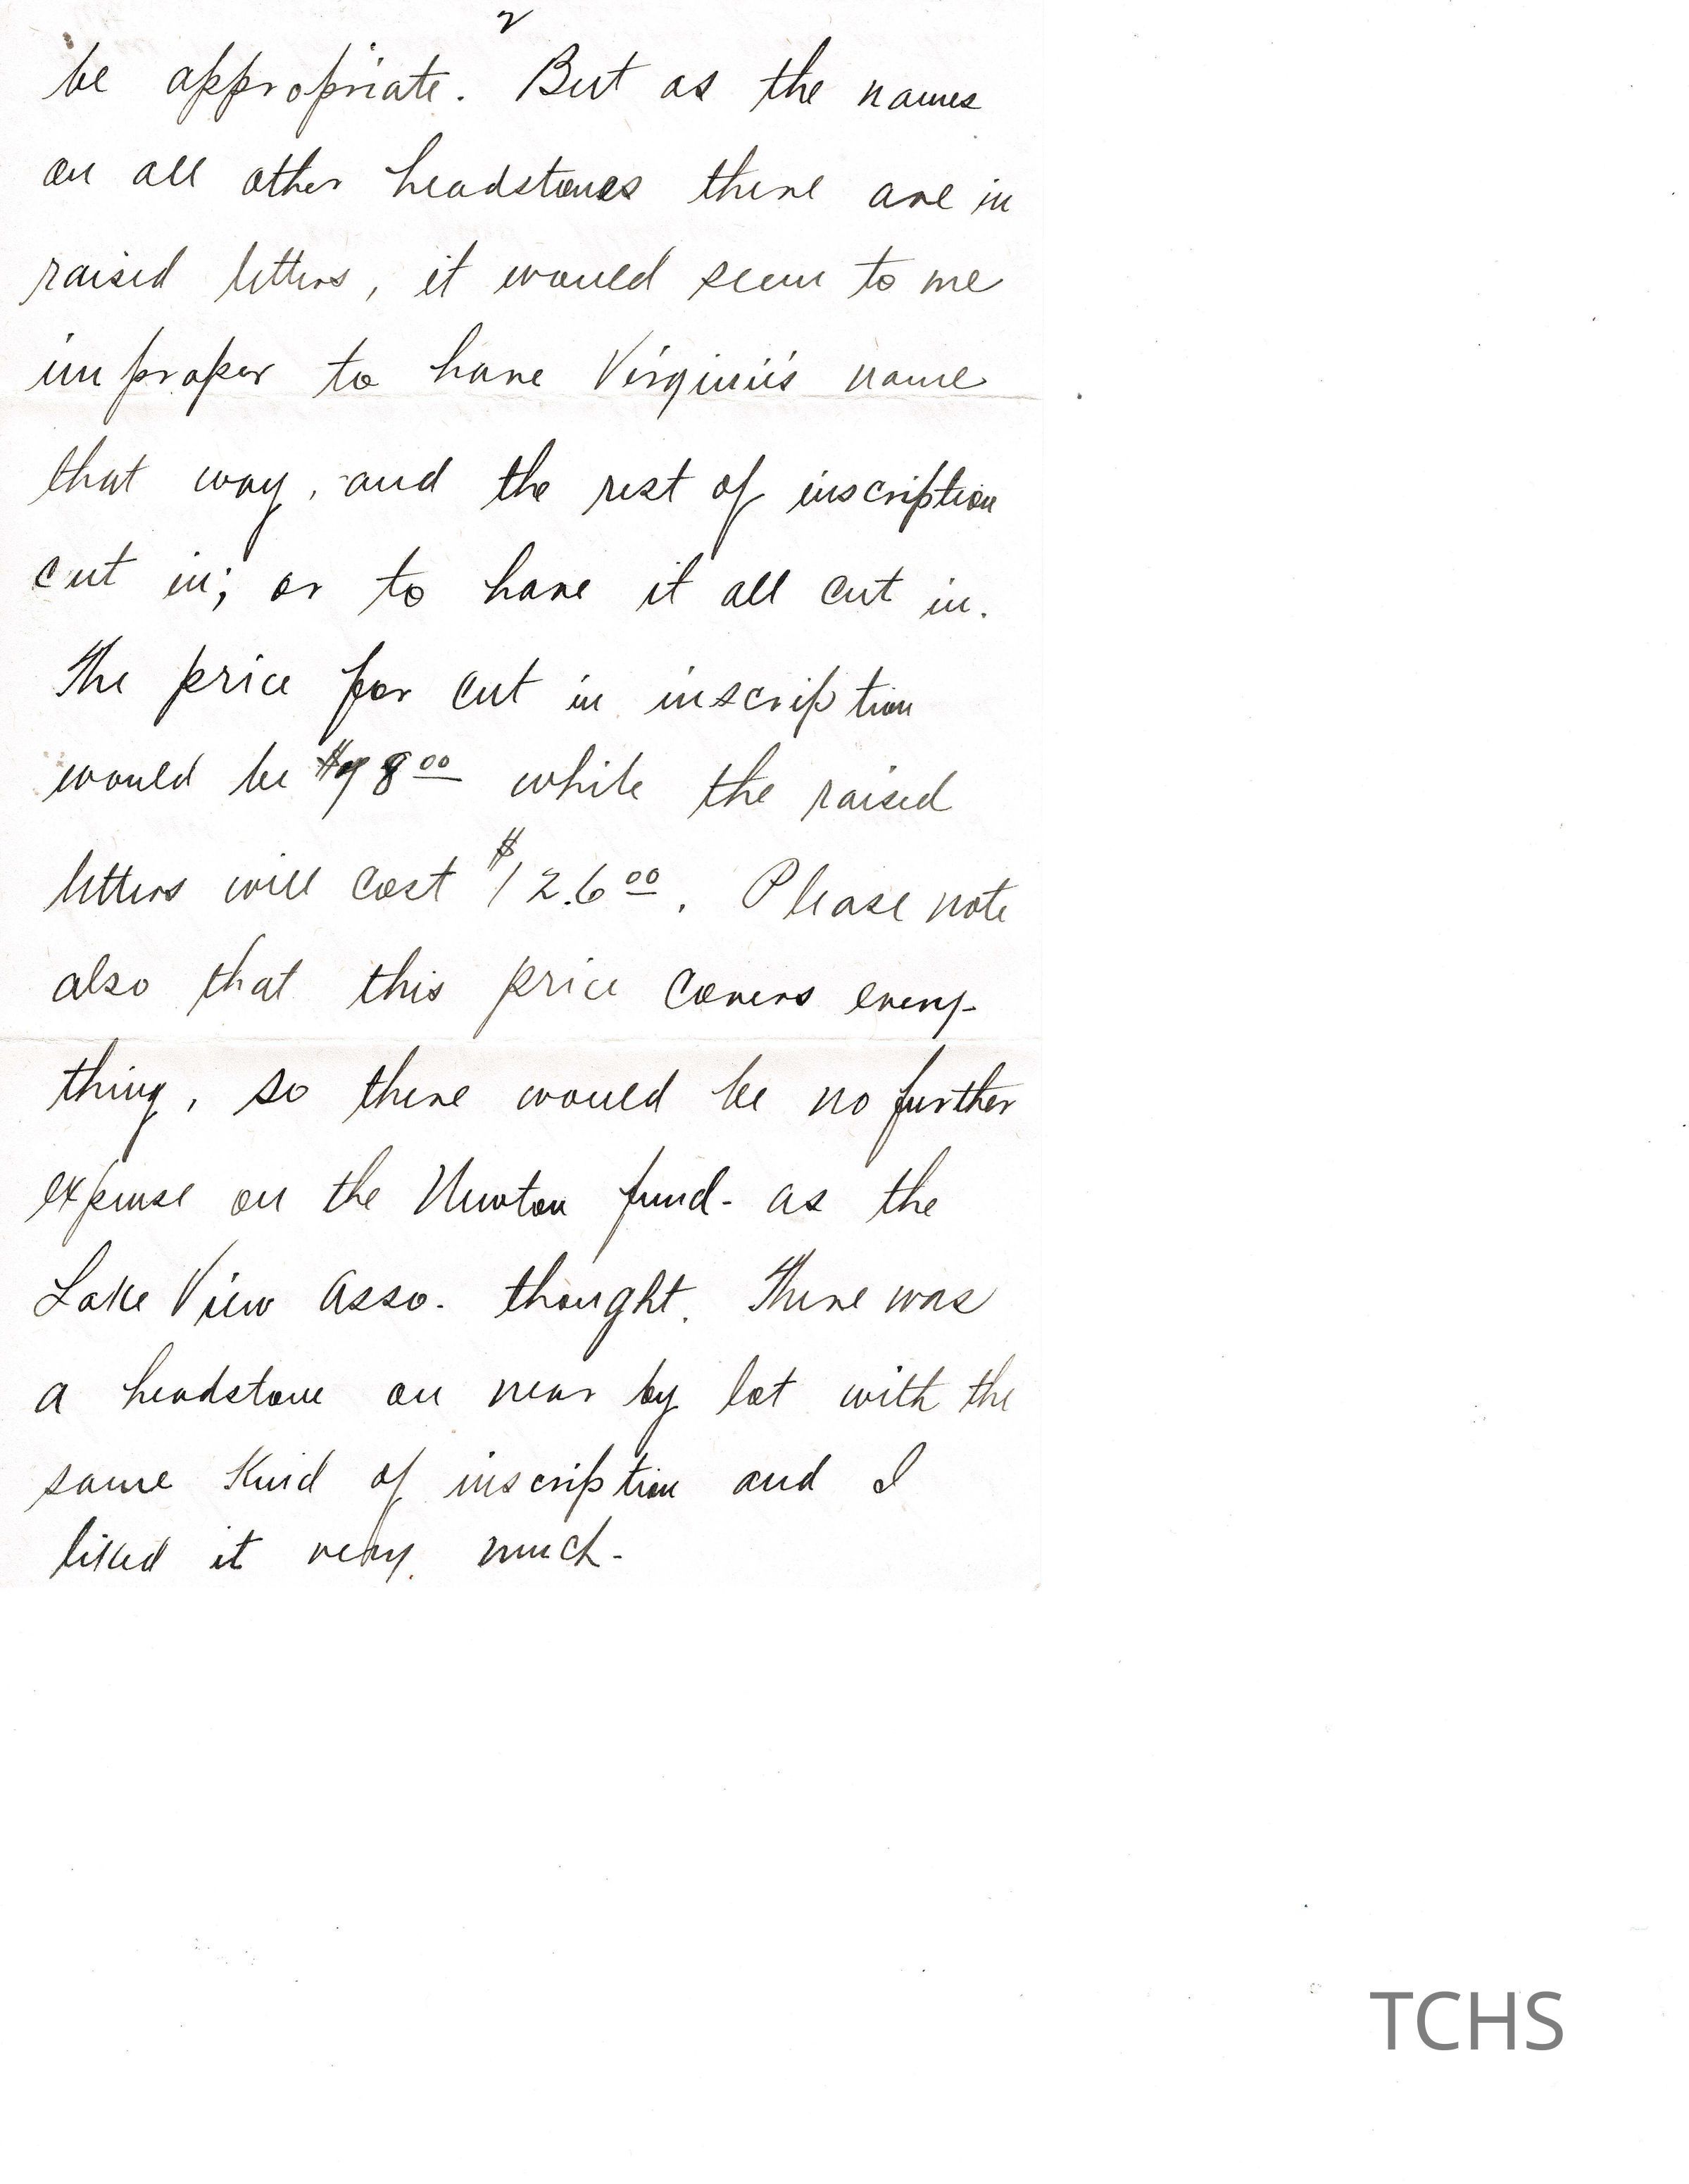 2
be appropriate. But as the names
on all other headstones there are in
raised letters, it would seem to me
improper to have Virginii's name
that way, and the rest of inscription
cut in; or to have it all cut in.
The price for cut in inscription
would be $98 00 while the raised
letters will cost $126 00. Please note
also that this price covers every-
thing, so there would be no further
expense on the Newton fund - as the
Lake View Asso. thought. There was
a headstone on near by lot with the
same Kind of inscription and I
liked it very much -
TCHS